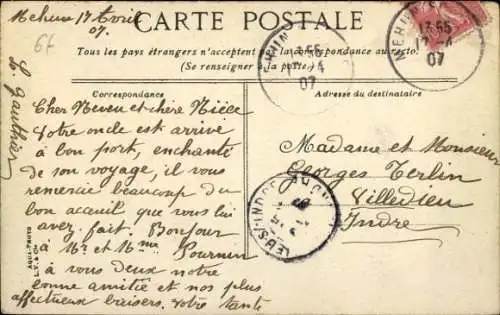 Mehun 17 Avril
07.
CARTE POSTALE
Tous les pays étrangers n'acceptent pas la correspondance au recto.
(Se renseigner à la poste)
Correspondance
Adresse du destinataire
Cher Neveu et chère Nièce
Votre oncle est arrivé
à bon port, enchanté
de son voyage, il vous
remercie beaucoup du
bon acceuil que vous lui
avez fait. Bonjour
à Mr et Mme Pournin
à vous deux notre
bonne amitié et nos plus
affectueux baisers. Votre tante
L. Gauthier
Madame et Monsieur
Georges Terlin
Villedieu
Indre
MEHUN
13 55
17 -4
07